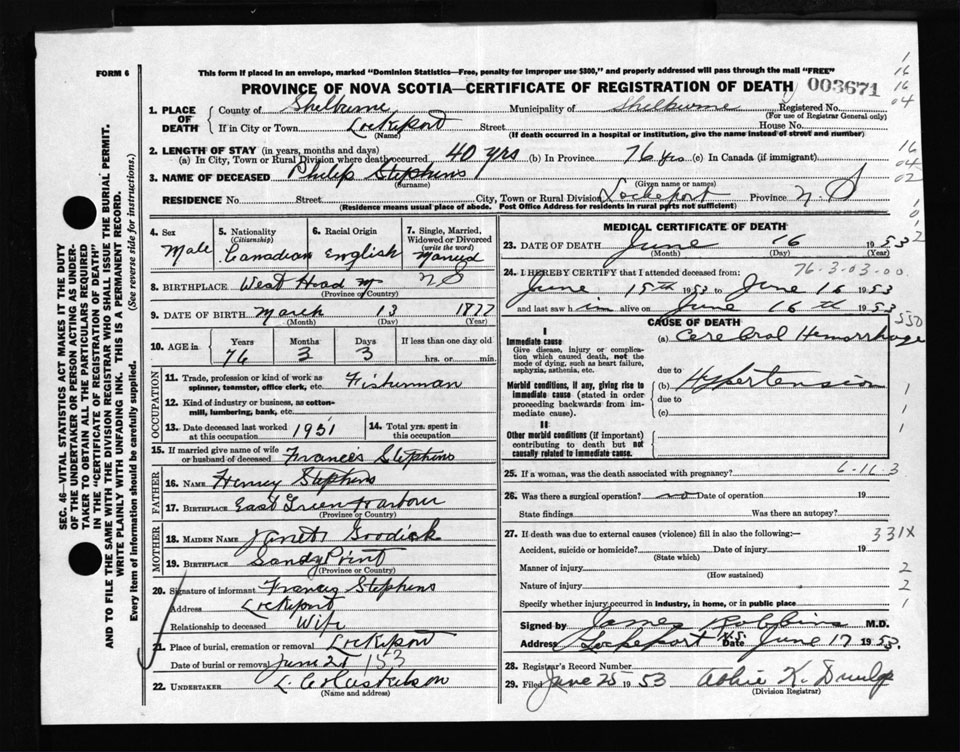 FORM 6
This form if placed in an envelope, marked "Dominion Statistics—Free, penalty for improper use $300," and properly addressed will pass through the mail "FREE"
PROVINCE OF NOVA SCOTIA—CERTIFICATE OF REGISTRATION OF DEATH 003671
1. PLACE OF DEATH
County of Shelburne Municipality of Shelburne Registered No.
(For use of Registrar General only)
If in City or Town Lockeport Street House No.
(Name) (If death occurred in a hospital or institution, give the name instead of street and number)
2. LENGTH OF STAY (in years, months and days)
(a) In City, Town or Rural Division where death occurred 40 yrs (b) In Province 76 yrs (c) In Canada (if immigrant)
3. NAME OF DECEASED Philip Stephens
(Surname) (Given name or names)
RESIDENCE No. Street City, Town or Rural Division Lockeport Province N.S
(Residence means usual place of abode. Post Office Address for residents in rural parts not sufficient)
4. Sex Male
5. Nationality (Citizenship) Canadian
6. Racial Origin English
7. Single, Married, Widowed or Divorced (write the word) Married
8. BIRTHPLACE West Head NS
(Province or Country)
9. DATE OF BIRTH March 13 1877
(Month) (Day) (Year)
10. AGE in Years 76 Months 3 Days 3 If less than one day old
hrs. or min.
OCCUPATION
11. Trade, profession or kind of work as spinner, teamster, office clerk, etc. Fisherman
12. Kind of industry or business, as cotton-mill, lumbering, bank, etc.
13. Date deceased last worked at this occupation 1951
14. Total yrs. spent in this occupation
15. If married give name of wife or husband of deceased Frances Stephens
FATHER
16. NAME Henry Stephens
17. BIRTHPLACE East Green Harbour
(Province or Country)
MOTHER
18. MAIDEN NAME Janet Goodick
19. BIRTHPLACE Sandy Point
(Province or Country)
20. Signature of informant Frances Stephens
Address Lockeport
Relationship to deceased Wife
21. Place of burial, cremation or removal Lockeport
Date of burial or removal June 53
22. UNDERTAKER L.
(Name and address)
MEDICAL CERTIFICATE OF DEATH
23. DATE OF DEATH June 16 1953
(Month) (Day) (Year)
76-3-03-00
24. I HEREBY CERTIFY that I attended deceased from:
June 15th 1953 to June 16 1953
and last saw him alive on June 16th 1953
CAUSE OF DEATH
I
Immediate cause
Give disease, injury or complication which caused death, not the mode of dying, such as heart failure, asphyxia, asthenia, etc.
(a) Cerebral Hemorrhage
due to
Morbid conditions, if any, giving rise to immediate cause (stated in order proceeding backwards from immediate cause).
(b) Hypertension
due to
(c)
II
Other morbid conditions (if important) contributing to death but not causally related to immediate cause.
25. If a woman, was the death associated with pregnancy?
26. Was there a surgical operation? no Date of operation 19
State findings Was there an autopsy?
27. If death was due to external causes (violence) fill in also the following:— 331X
Accident, suicide or homicide? Date of injury 19
(State which)
Manner of injury 2
(How sustained)
Nature of injury 2
Specify whether injury occurred in industry, in home, or in public place 1
Signed by James Robbins M.D.
Address Lockeport N.S. Date June 17 1953.
28. Registrar's Record Number
29. Filed June 25 1953 Abbie K. Dunlop
(Division Registrar)
SEC. 46—VITAL STATISTICS ACT MAKES IT THE DUTY
OF THE UNDERTAKER OR PERSON ACTING AS UNDER-
TAKER TO OBTAIN ALL THE PARTICULARS REQUIRED
IN THE "CERTIFICATE OF REGISTRATION OF DEATH"
AND TO FILE THE SAME WITH THE DIVISION REGISTRAR WHO SHALL ISSUE THE BURIAL PERMIT.
WRITE PLAINLY WITH UNFADING INK. THIS IS A PERMANENT RECORD.
Every item of Information should be carefully supplied. (See reverse side for instructions.)
1
16
16
04
16
04
02